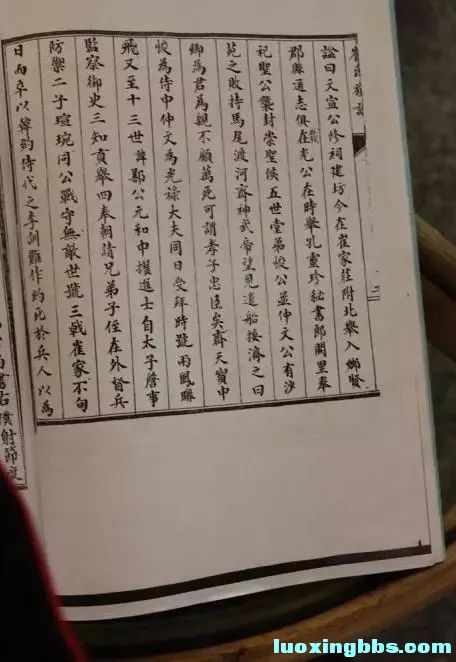 諡曰文宣公修祠建坊今在崔家莊附北舉入鄉賢
郡縣通志俱載在光公在時舉孔靈珍秘書郎闕里奉
祀聖公襲封崇聖侯五世堂弟悛公並仲文公有沙
苑之敗持馬尾渡河齊神武帝望見遣船接濟之曰
卿為君為親不顧萬死可謂孝子忠臣矣齊天寶中
悛為侍中仲文為光祿大夫同日受拜時號兩鳳聯
飛又至十三世諱鄯公元和中擢進士自太子詹事
監察御史三知貢舉四奉朝請兄弟子侄在外督兵
防禦二子瑄琬同公戰守無敵世號三戟崔家不旬
日而卒以韓約侍代之李訓難作約死於兵人以為
尚書右僕射節度
luoxingbbs.com